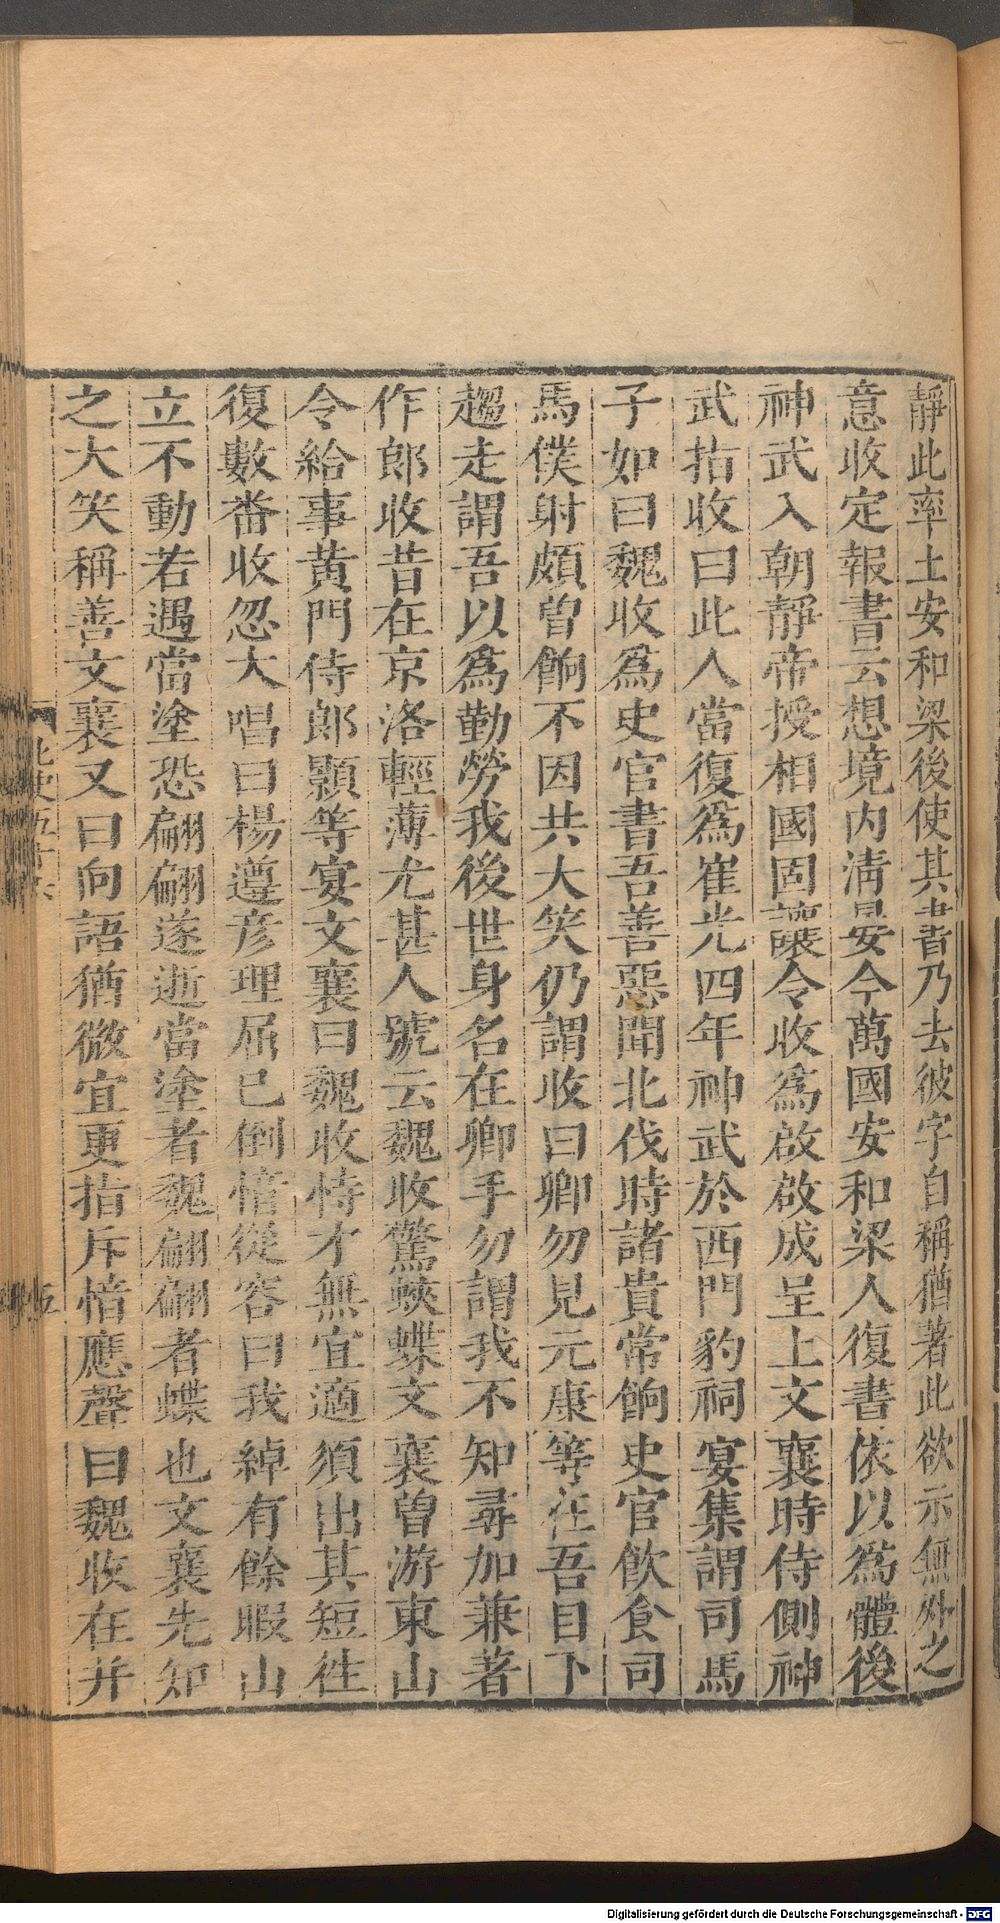 靜此率土安和梁後使其書乃去彼字自稱猶著此欲示無外之
意收定報書云想境内清晏今萬國安和梁人復書依以爲體後
神武入朝靜帝授相國固讓令收爲啟啟成呈上文襄時侍側神
武指收曰此人當復爲崔光四年神武於西門豹祠宴集謂司馬
子如曰魏收爲史官書吾善惡聞北伐時諸貴常餉史官飲食司
馬僕射頗曾餉不因共大笑仍謂收曰卿勿見元康等在吾目下
趨走謂吾以爲勤勞我後世身名在卿手勿謂我不知尋加兼著
作郎收昔在京洛輕薄尤甚人號云魏收驚蛺蝶文襄曾游東山
令給事黄門侍郎顥等宴文襄曰魏收恃才無宜適須出其短往
復數番收忽大唱曰楊遵彦理屈已倒愔從容曰我綽有餘暇山
立不動若遇當塗恐翩翩遂逝當塗者魏翩翩者蝶也文襄先知
之大笑稱善文襄又曰向語猶微宜更指斥愔應聲曰魏收在并
北史五十六
五
Digitalisierung gefördert durch die Deutsche Forschungsgemeinschaft - DFG